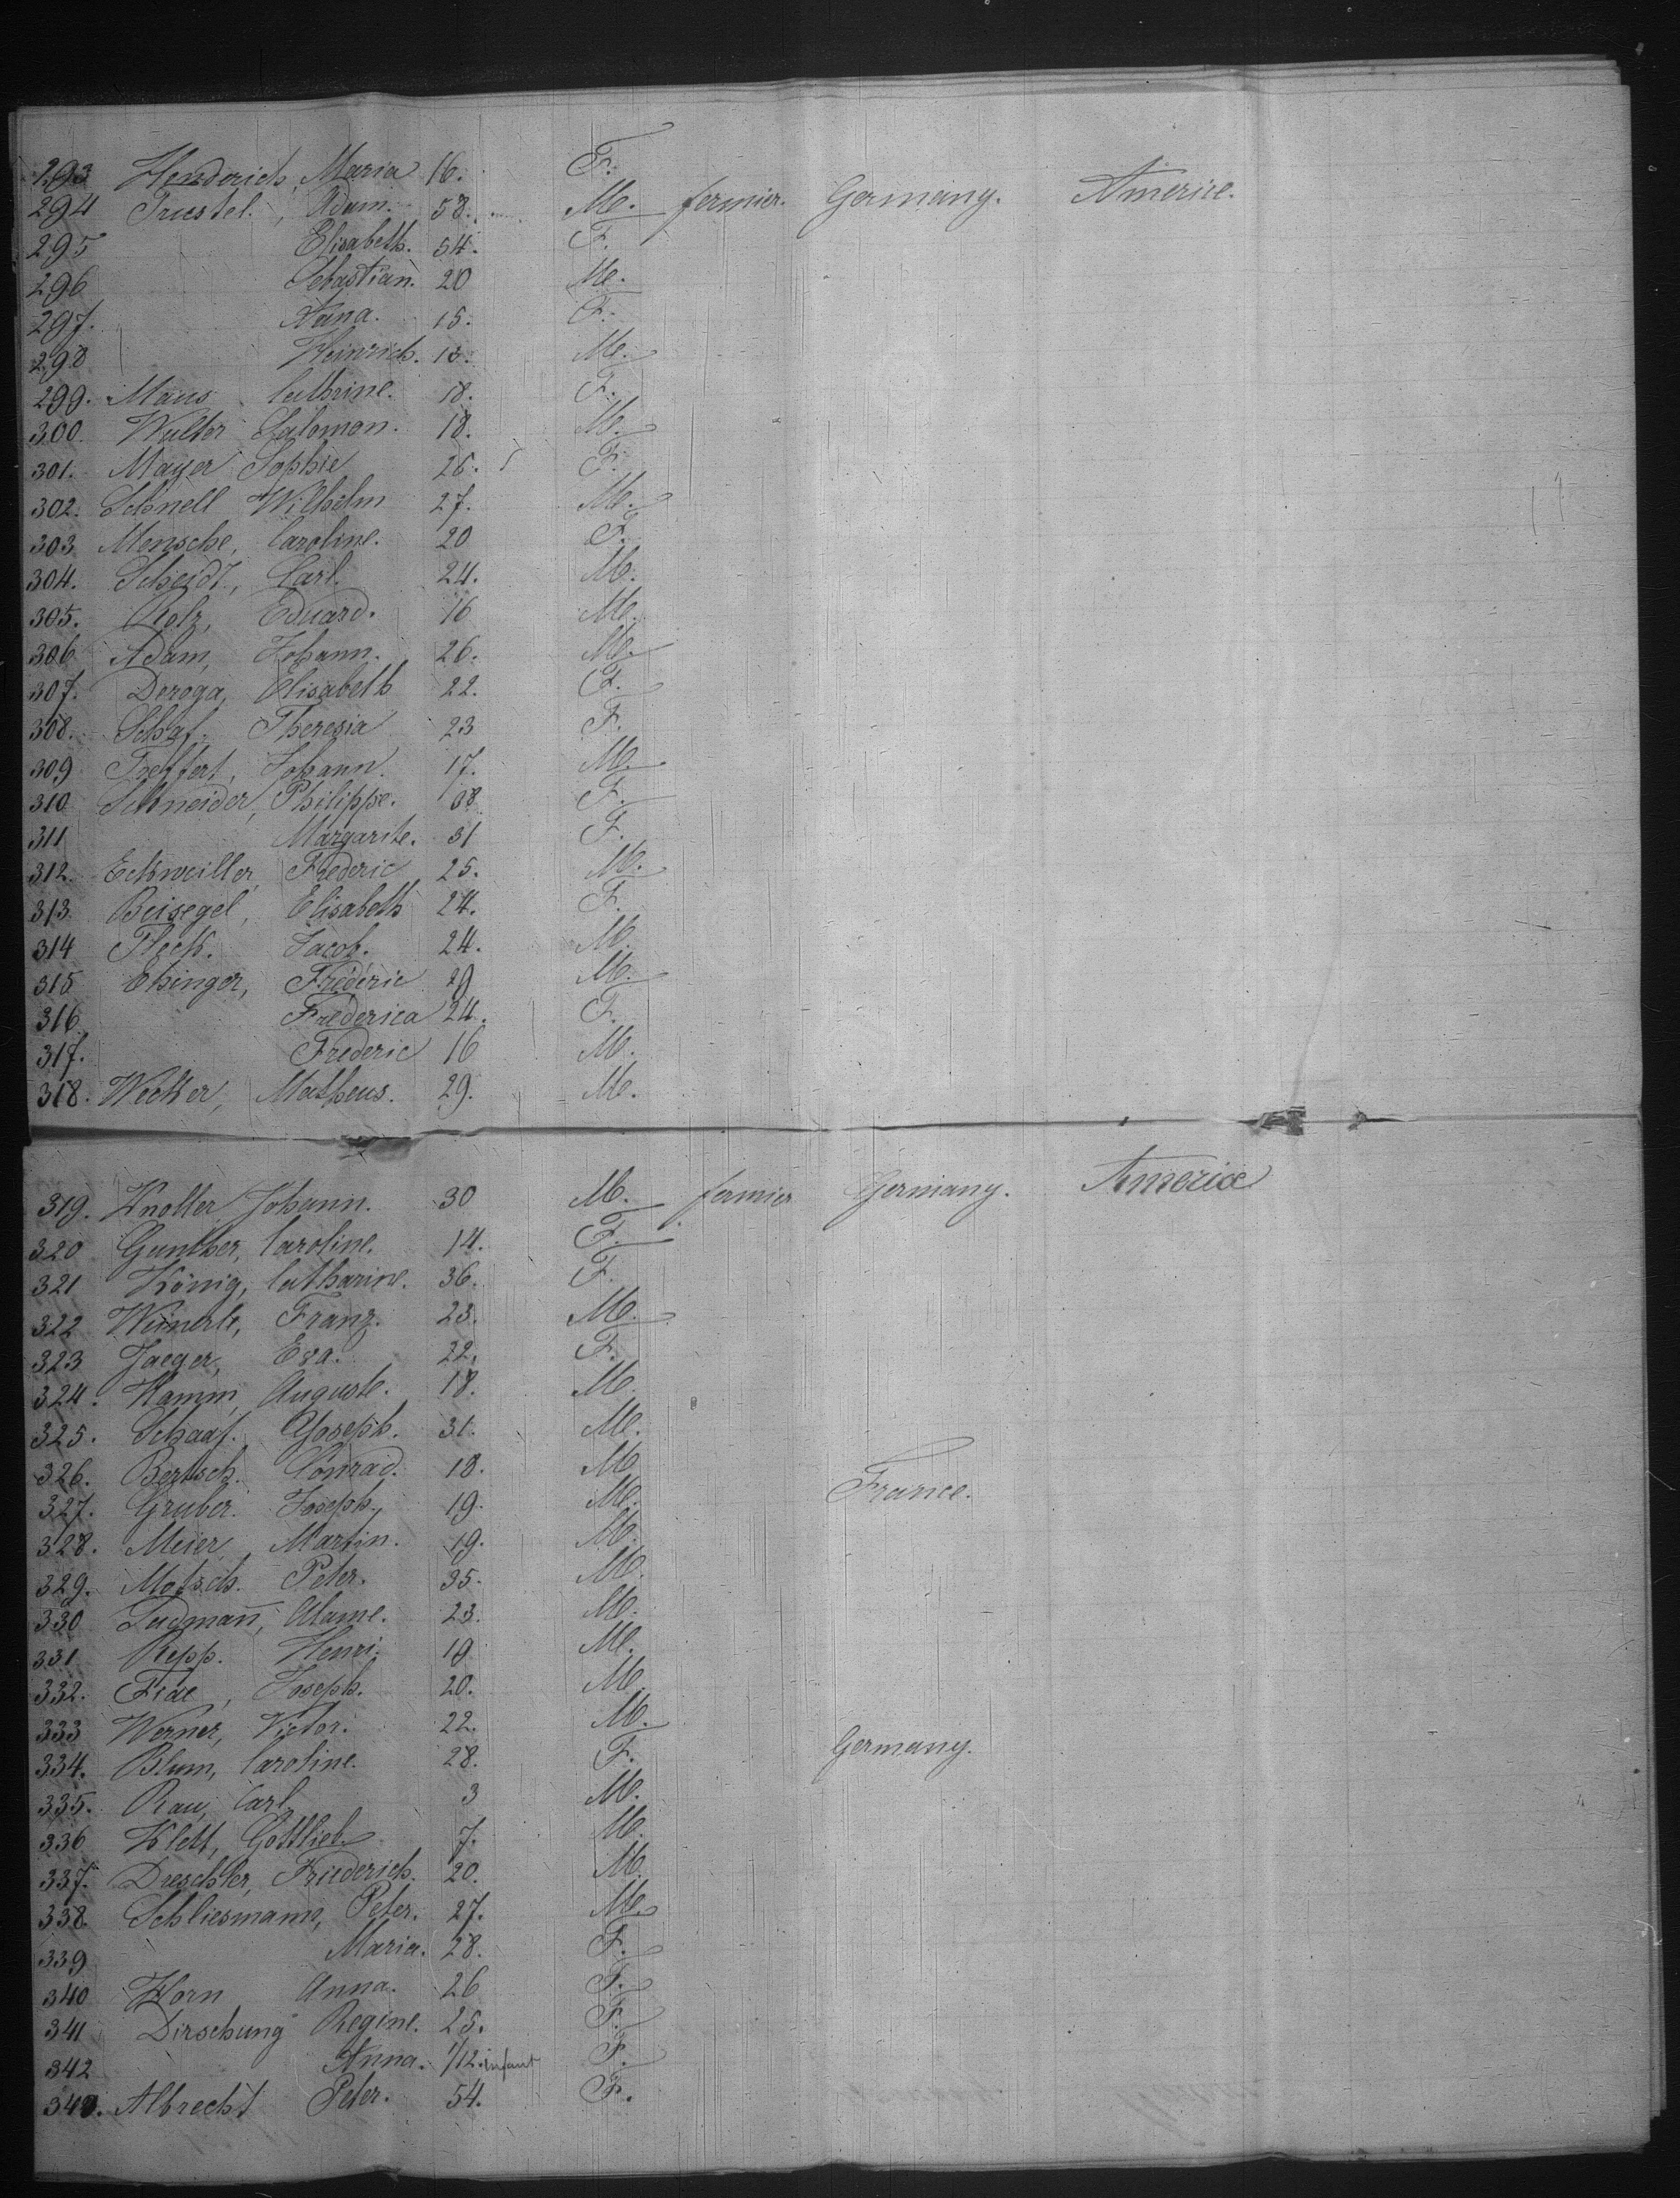 293 Henderich, Maria 16. F.
294 Trustel., Adam. 58. M. fermier. Germany. Americe.
295 Elisabeth. 54. F.
296 Sebastian. 20 M.
297. Anna. 15. F.
298 Heinrich. 18. M.
299. Maus Cathrine. 18. F.
300. Walter Salomon. 18. M.
301. Mayer Sophie 26. F.
302. Schnell Wilhelm 27. M.
303 Mensche, Caroline. 20 F.
304. Scheidt, Carl. 24. M.
305. Rolz, Eduard. 16 M.
306 Adam, Johann. 26. M.
307. Deroga, Elisabeth 22. F.
308. Schaf. Theresia 23 F.
309 Treffert, Johann. 17. M.
310 Schneider, Philippe. 38 F.
311 Margarite. 31 F.
312. Eckweiller, Frederic 25. M.
313. Beisegel, Elisabeth 24. F.
314 Fleck. Jacob. 24. M.
315 Ehinger, Fréderic 29 M.
316 Frederica 24. F.
317. Frederic 16 M.
318. Wecker, Matheus. 29. M.
319. Knoller Johann. 30 M. fermier Germany. America
320 Gunther, Caroline. 14. F.
321 König, Catharine. 36. F.
322 Franz. 23. M.
323 Jaeger, Eva. 22. F.
324. Hamm, Auguste. 18. M.
325. Schaaf. Joseph. 31. M.
326. Bertsch. Conrad. 18. M
327. Gruber. Joseph. 19. M. France.
328. Meier, Martin. 19. M.
329. Motsch. Peter. 35. M.
330 Ludmann, 23. M.
331 Repp. Henri. 19 M.
332. Joseph. 20. M
333 Werner, Victor. 22. M.
334. Blum, Caroline. 28. F. Germany.
335. Rau, Carl 3 M.
336 Klett, Gottlieb 7. M.
337. Dreschler, Friederich. 20. M.
338. Schliesmann, Peter. 27. M.
339 Maria. 28. F.
340 Horn Anna. 26 F.
341 Dirschung Regine. 25. F.
342 Anna. 1/12. infant F.
343. Albrecht Peter. 54. F.